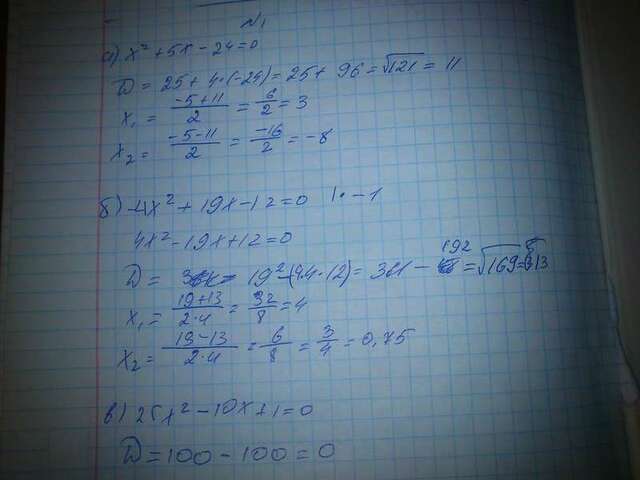 №1
а) x² + 5x - 24 = 0
D = 25 + 4·(-24) = 25 + 96 = √121 = 11
x₁ = (-5+11)/2 = 6/2 = 3
x₂ = (-5-11)/2 = -16/2 = -8
б) -4x² + 19x - 12 = 0 |· -1
4x² - 19x + 12 = 0
D = 19² - (4·4·12) = 361 - 192 = √169 = 13
x₁ = (19+13)/(2·4) = 32/8 = 4
x₂ = (19-13)/(2·4) = 6/8 = 3/4 = 0,75
в) 25x² - 10x + 1 = 0
D = 100 - 100 = 0